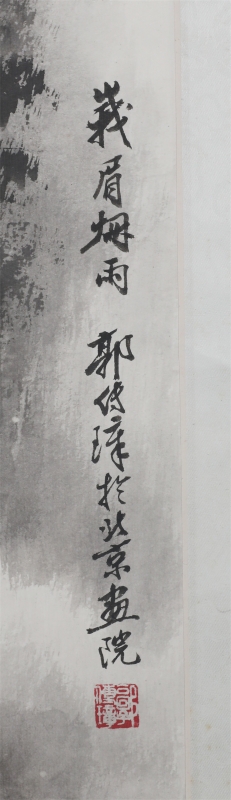 峩眉烟雨 郭传璋於北京画院
郭傳璋